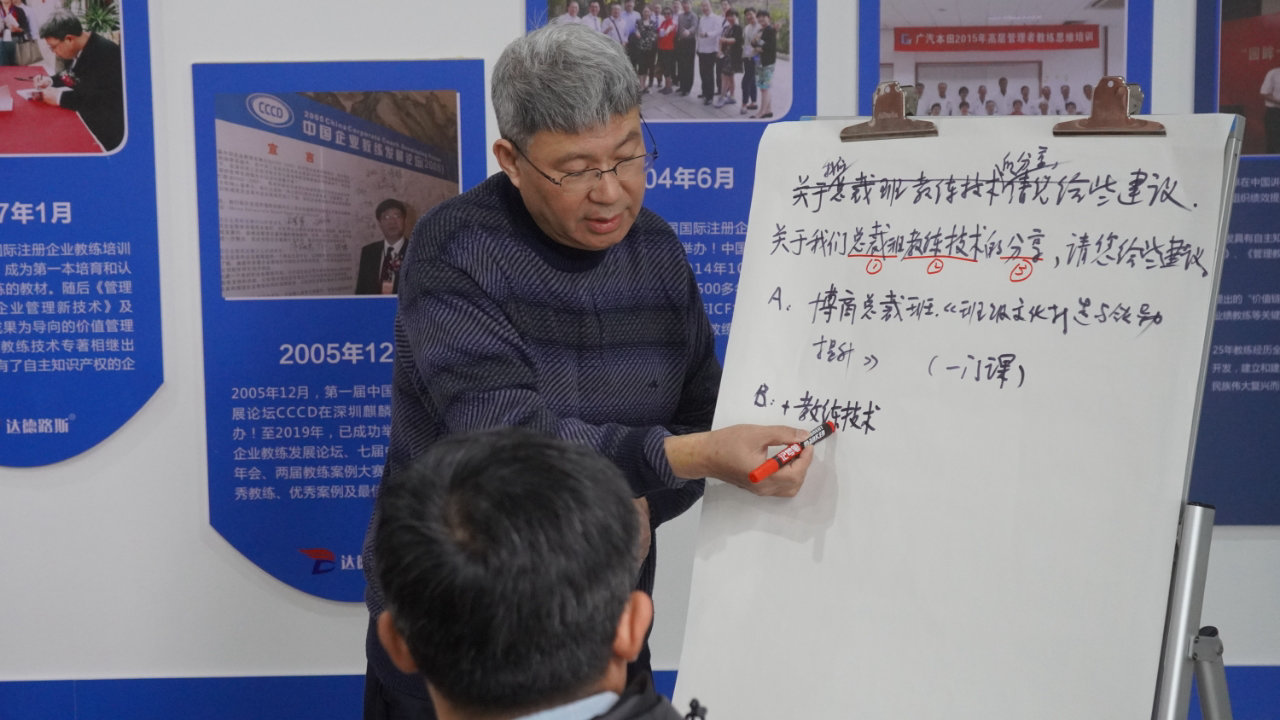 7年1月
国际注册企业教练培训
成为第一本培育和认
练的教材。随后《管理
企业管理新技术》及
成果为导向的价值管理
教练技术专著相继出
有了自主知识产权的企
达德路斯®
CCCD
2005 China Corporate Coach Development Forum
中国企业教练发展论坛(2005)
宣言
2005年12
2005年12月，第一届中国
展论坛CCCD在深圳麒麟
办！至2019年，已成功举
企业教练发展论坛、七届
年会、两届教练案例大赛
秀教练、优秀案例及最佳
达德
04年6月
国国际注册企
举办！中国
14年10
500多
ICF
教练
广汽本田2015年高层管理者教练思维培训
关于总裁班教练技术情况给些建议.
的分享
关于我们总裁班教练技术的分享,请您给些建议
① ② ③
A. 博商总裁班《班级文化打造与领导力
提升》 (一门课)
B: + 教练技术
记号笔
在中国讲
组织绩效提
具有自主知
《管理教
提出的“价值钱
业绩教练等关键
25年教练经历全
开发，建立和建
民族伟大复兴而